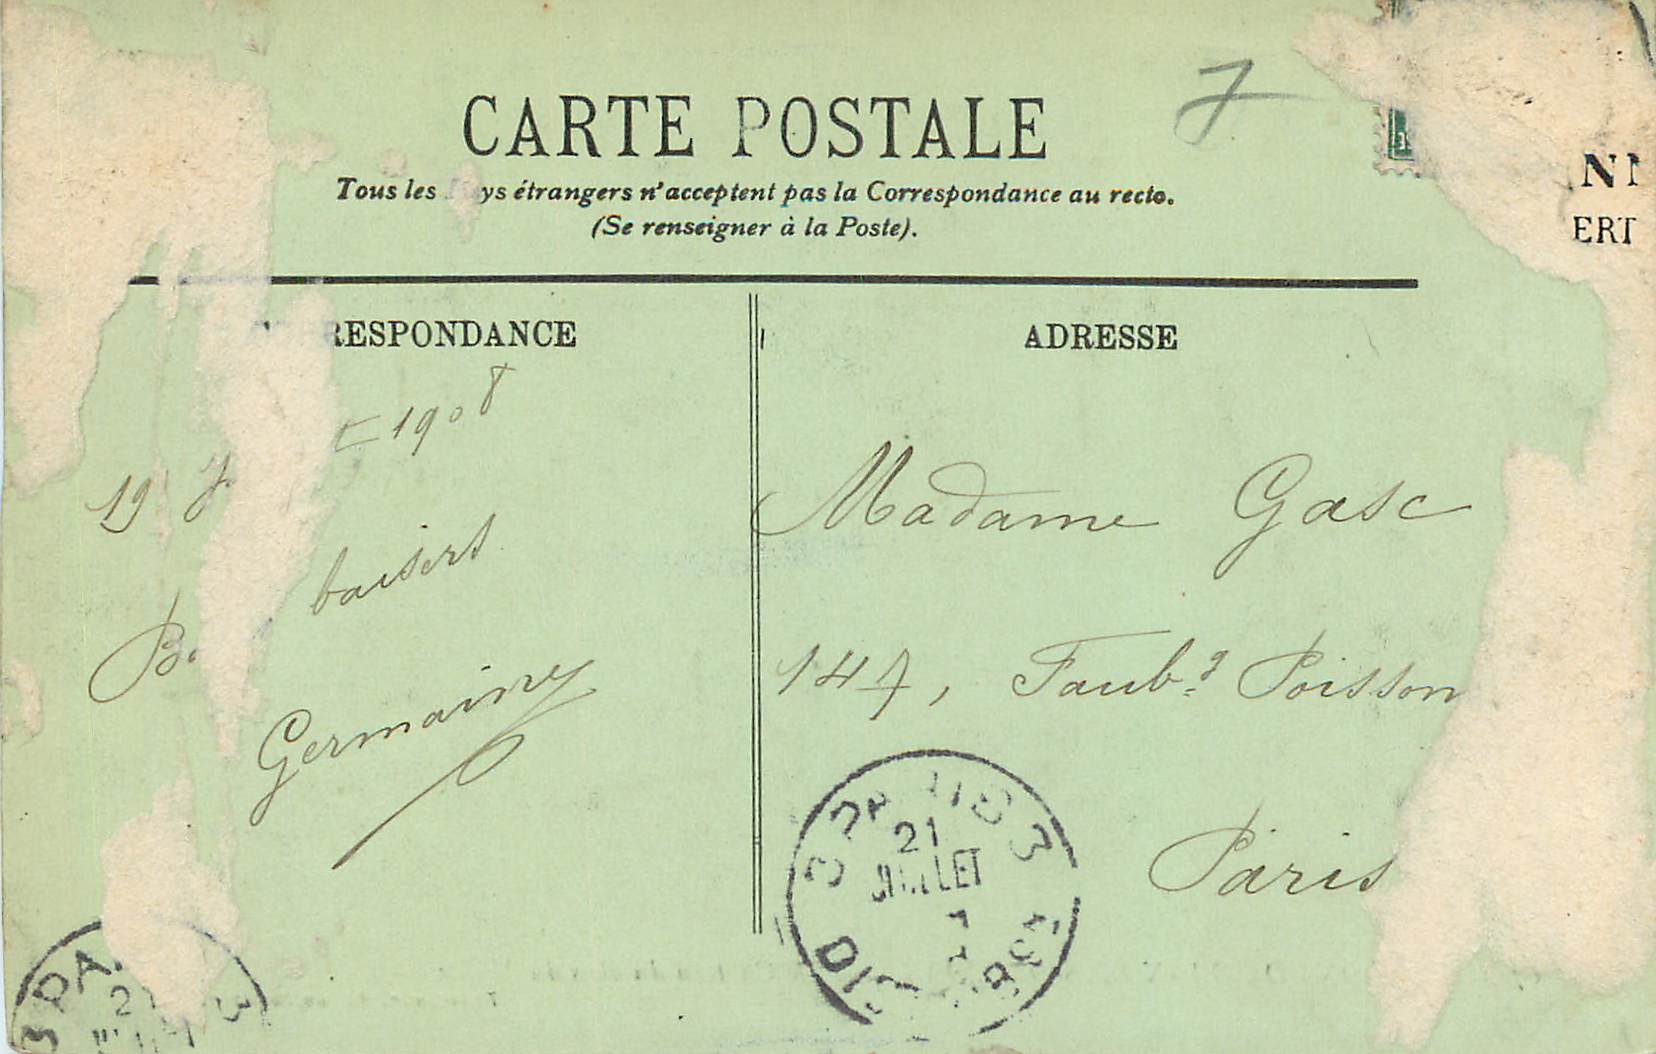 7
CARTE POSTALE
Tous les ys étrangers n'acceptent pas la Correspondance au recto.
(Se renseigner à la Poste).
NN
ERT
RESPONDANCE
ADRESSE
19 J t 1908
B. baisers
Germaine
Madame Gasc
147, Faubg Poisson
Paris
3 PARIS 3
21
JUILLET
3 PA 3
2